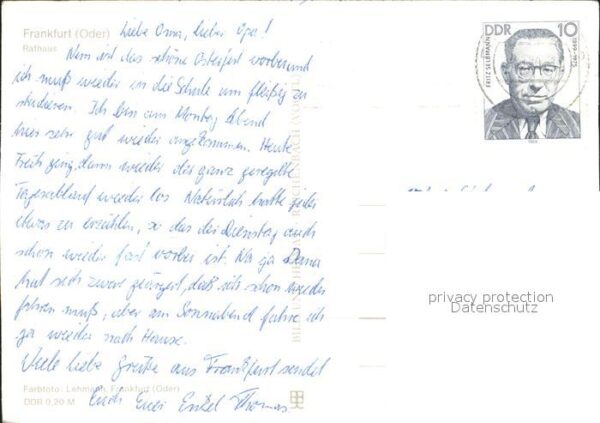 Frankfurt (Oder)
Rathaus
Liebe Oma, lieber Opa!
Nun ist das schöne Osterfest vorbei und
ich muß wieder in die Schule um fleißig zu
studieren. Ich bin am Montag Abend
hier sehr gut wieder angekommen. Heute
Früh ging dann wieder der ganz geregelte
Tagesablauf wieder los. Natürlich hatte jeder
etwas zu erzählen, so das der Dienstag auch
schon wieder fast vorbei ist. Na ja Dana
hat sich zwar geärgert, daß ich schon wieder
fahren muß, aber am Sonnabend fahre ich
ja wieder nach Hause.
Viele liebe Grüße aus Frankfurt sendet
Euch Euer Enkel Thomas
Farbfoto: Lehmann, Frankfurt (Oder)
DDR 0,20 M
BILD UND HEIMAT REICHENBACH
DDR 10
FRITZ SELBMANN
1899-1975
1989
privacy protection
Datenschutz